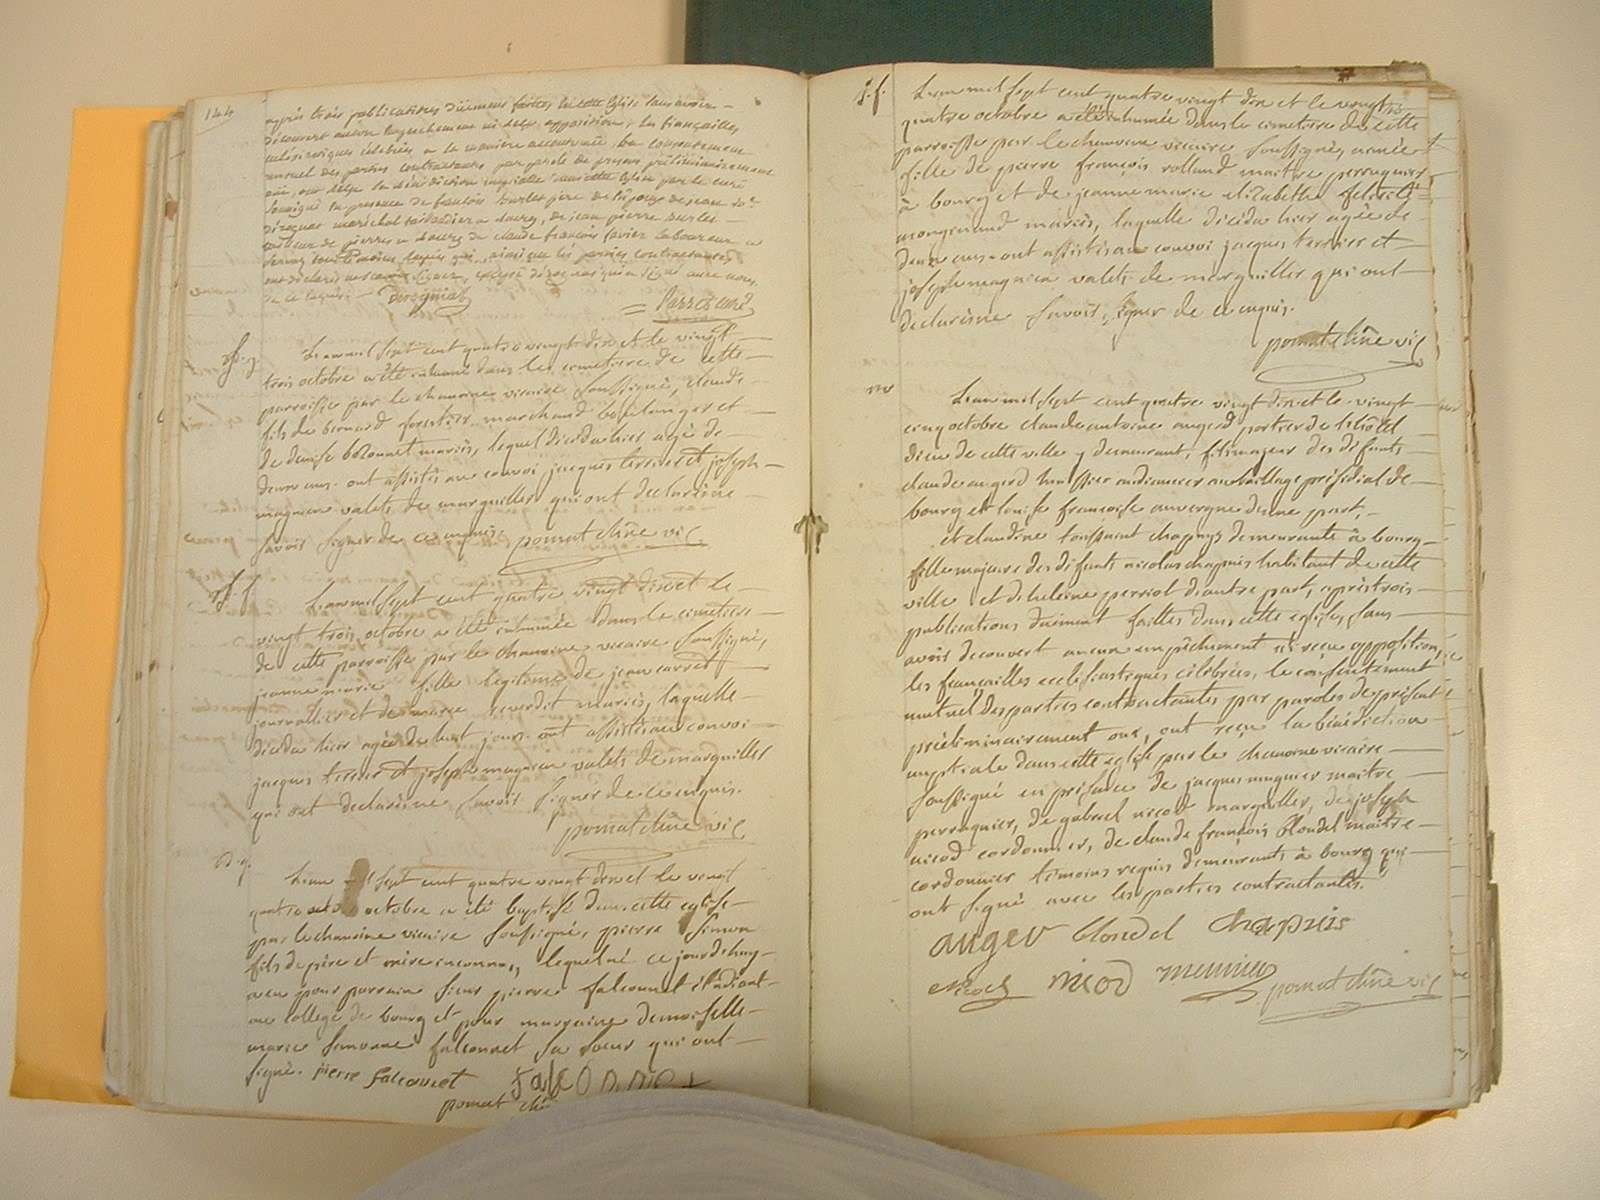 144
après trois publications düement faittes en cette Eglise sans avoir
découvert aucun Empechement ni reçu opposition, les fiançailles
eclésiastiques célébrées a la manière accoutumée, le consentement
mutuel des parties contractantes par parole de présent préliminairement
ouï, ont reçu la bénédiction nuptiale dans cette Eglise par le curé
soussigné en présence de
maréchal a bourg, de jean pierre
de pierres a bourg de claude françois
témoins requis qui ainsi que les parties contractantes
ont déclaré ne savoir signer, excepté qui a signé avec nous
de ce requis.
curé
L'an mil sept cent quatre vingt dix et le vingt
trois octobre a été inhumé dans le cimetiere de cette
parroisse par le chanoine vicaire soussigné, claude
fils de bernard forestier marchand boulanger et
de denise bolonnet mariés, lequel décéda hier agé de
deux ans. ont assistés au convoi jacques terrier et joseph
magnien valets de marguiller qui ont declaré ne
savoir signer de ce enquis. pomat chne vic
L'an mil sept cent quatre vingt dix et le
vingt trois octobre a été inhumée dans le cimetiere
de cette parroisse par le chanoine vicaire soussigné,
jeanne marie fille legitime de jean carret
journallier et de marie mariés, laquelle
décéda hier agée de huit jours. ont assistés au convoi
jacques terrier et joseph magnien valets de marguiller
qui ont declaré ne savoir signer de ce enquis.
pomat chne vic
B. g.
L'an mil sept cent quatre vingt dix et le vingt
quatre octobre a été baptisé dans cette eglise
par le chanoine vicaire soussigné, pierre Simon
fils de père et mère inconnus, lequel né ce jourd'huy
a eu pour parrain sieur pierre falconnet étudiant
au college de bourg et pour marraine demoiselle
marie simonne falconnet sa soeur qui ont
signé. pierre falconnet falconnet
pomat chne
S. f.
L'an mil sept cent quatre vingt dix et le vingt
quatre octobre a été inhumée dans le cimetiere de cette
parroisse par le chanoine vicaire soussigné, aimée
fille de pierre françois rolland maitre perruquier
à bourg et de jeanne marie elizabethe felicité
mongenand mariés, laquelle décéda hier agée de
deux ans. ont assistés au convoi jacques terrier et
joseph magnien valets de marguiller qui ont
declaré ne savoir signer de ce enquis.
pomat chne vic
L'an mil sept cent quatre vingt dix et le vingt
cinq octobre claude antoine augerd portier de l'hôtel
dieu de cette ville y demeurant, fils majeur des défunts
claude augerd huissier audiancier au baillage présidial de
bourg et louise françoise auvergne d'une part,
et claudine toussaint chapuys demeurante à bourg
fille majeure des défunts nicolas chapuis habitant de cette
ville et de heleine perriot d'autre part, après trois
publications duëment faittes dans cette eglise, sans
avoir decouvert aucun empêchement ni reçu opposition,
les fiançailles ecclésiastiques célébrées, le consentement
mutuel des parties contractantes par paroles de présent
préliminairement ouï, ont reçu la bénédiction
nuptiale dans cette eglise par le chanoine vicaire
soussigné en présence de jacques mugnier maitre
perruquier, de gabriel nicod marguiller, de joseph
nicod cordonnier, de claude françois blondel maitre
cordonnier temoins requis demeurants à bourg qui
ont signé avec les parties contractantes.
auger blondel chapuis
nicod nicod pomat chne vic